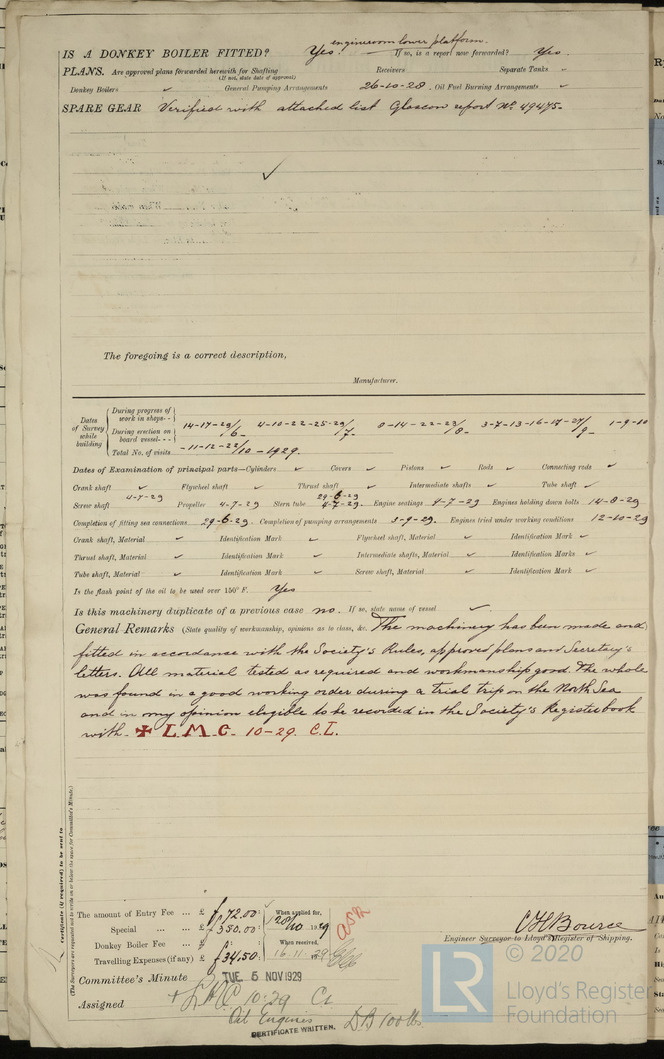 engineroom lower platform.
IS A DONKEY BOILER FITTED? Yes. If so, is a report now forwarded? Yes.
PLANS. Are approved plans forwarded herewith for Shafting Receivers Separate Tanks ✓
(If not, state date of approval)
Donkey Boilers ✓ General Pumping Arrangements 26-10-28. Oil Fuel Burning Arrangements ✓
SPARE GEAR Verified with attached list Glasgow report No. 49475.
✓
The foregoing is a correct description,
Manufacturer.
Dates of Survey while building
During progress of work in shops--
During erection on board vessel---
Total No. of visits
14-17-29/6- 4-10-22-25-29/7- 8-14-22-23/8- 3-7-13-16-17-27/9- 1-9-10
-11-12-22/10-1929.
Dates of Examination of principal parts—Cylinders ✓ Covers ✓ Pistons ✓ Rods ✓ Connecting rods ✓
Crank shaft ✓ Flywheel shaft ✓ Thrust shaft ✓ Intermediate shafts ✓ Tube shaft ✓
Screw shaft 4-7-29 Propeller 4-7-29 Stern tube 29-6-29 4-7-29. Engine seatings 9-7-29 Engines holding down bolts 14-8-29
Completion of fitting sea connections 29-6-29. Completion of pumping arrangements 3-9-29. Engines tried under working conditions 12-10-29
Crank shaft, Material ✓ Identification Mark ✓ Flywheel shaft, Material ✓ Identification Mark ✓
Thrust shaft, Material ✓ Identification Mark ✓ Intermediate shafts, Material ✓ Identification Marks ✓
Tube shaft, Material ✓ Identification Mark ✓ Screw shaft, Material ✓ Identification Mark ✓
Is the flash point of the oil to be used over 150° F. Yes
Is this machinery duplicate of a previous case no. If so, state name of vessel ✓
General Remarks (State quality of workmanship, opinions as to class, &c. The machinery has been made and
fitted in accordance with the Society's Rules, approved plans and Secretary's
letters. All material tested as required and workmanship good. The whole
was found in a good working order during a trial trip on the North Sea
and in my opinion eligible to be recorded in the Society's Registerbook
with ✠ L.M.C. 10-29. C.L.
Certificate (if required) to be sent to
(The Surveyors are requested not to write on or below the space for Committee's Minute.)
The amount of Entry Fee ... £ 72.00: When applied for,
Special ... ... £ 350.00: 28/10 1929
Donkey Boiler Fee ... £ : : When received,
Travelling Expenses (if any) £ 34.50: 16.11 1929
C H Bource
Engineer Surveyor to Lloyd's Register of Shipping.
Committee's Minute TUE. 5 NOV 1929
Assigned + LMC 10.29 CL
Oil Engines DB 100 lbs
CERTIFICATE WRITTEN.
LR
© 2020
Lloyd's Register
Foundation